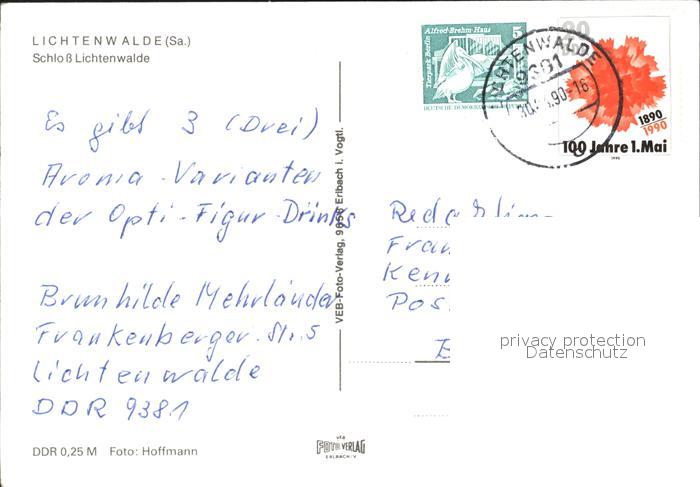 LICHTENWALDE (Sa.)
Schloß Lichtenwalde
Es gibt 3 (Drei)
Aroma-Varianten
der Opti-Figur-Drinks
Brunhilde Mehrländer
Frankenberger. Str. 5
Lichtenwalde
DDR 9381
DDR 0,25 M Foto: Hoffmann
VEB-Foto-Verlag, 9656 Erlbach i. Vogtl.
VEB
FOTO VERLAG
ERLBACH/V
Alfred-Brehm-Haus
Tierpark Berlin
5
9381
.90-16
1890
1990
100 Jahre 1.Mai
1990
Fran
Kenn
Pos
privacy protection
Datenschutz